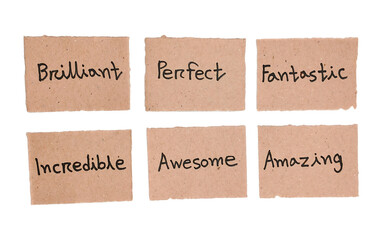 Brilliant
Perfect
Fantastic
Incredible
Awesome
Amazing